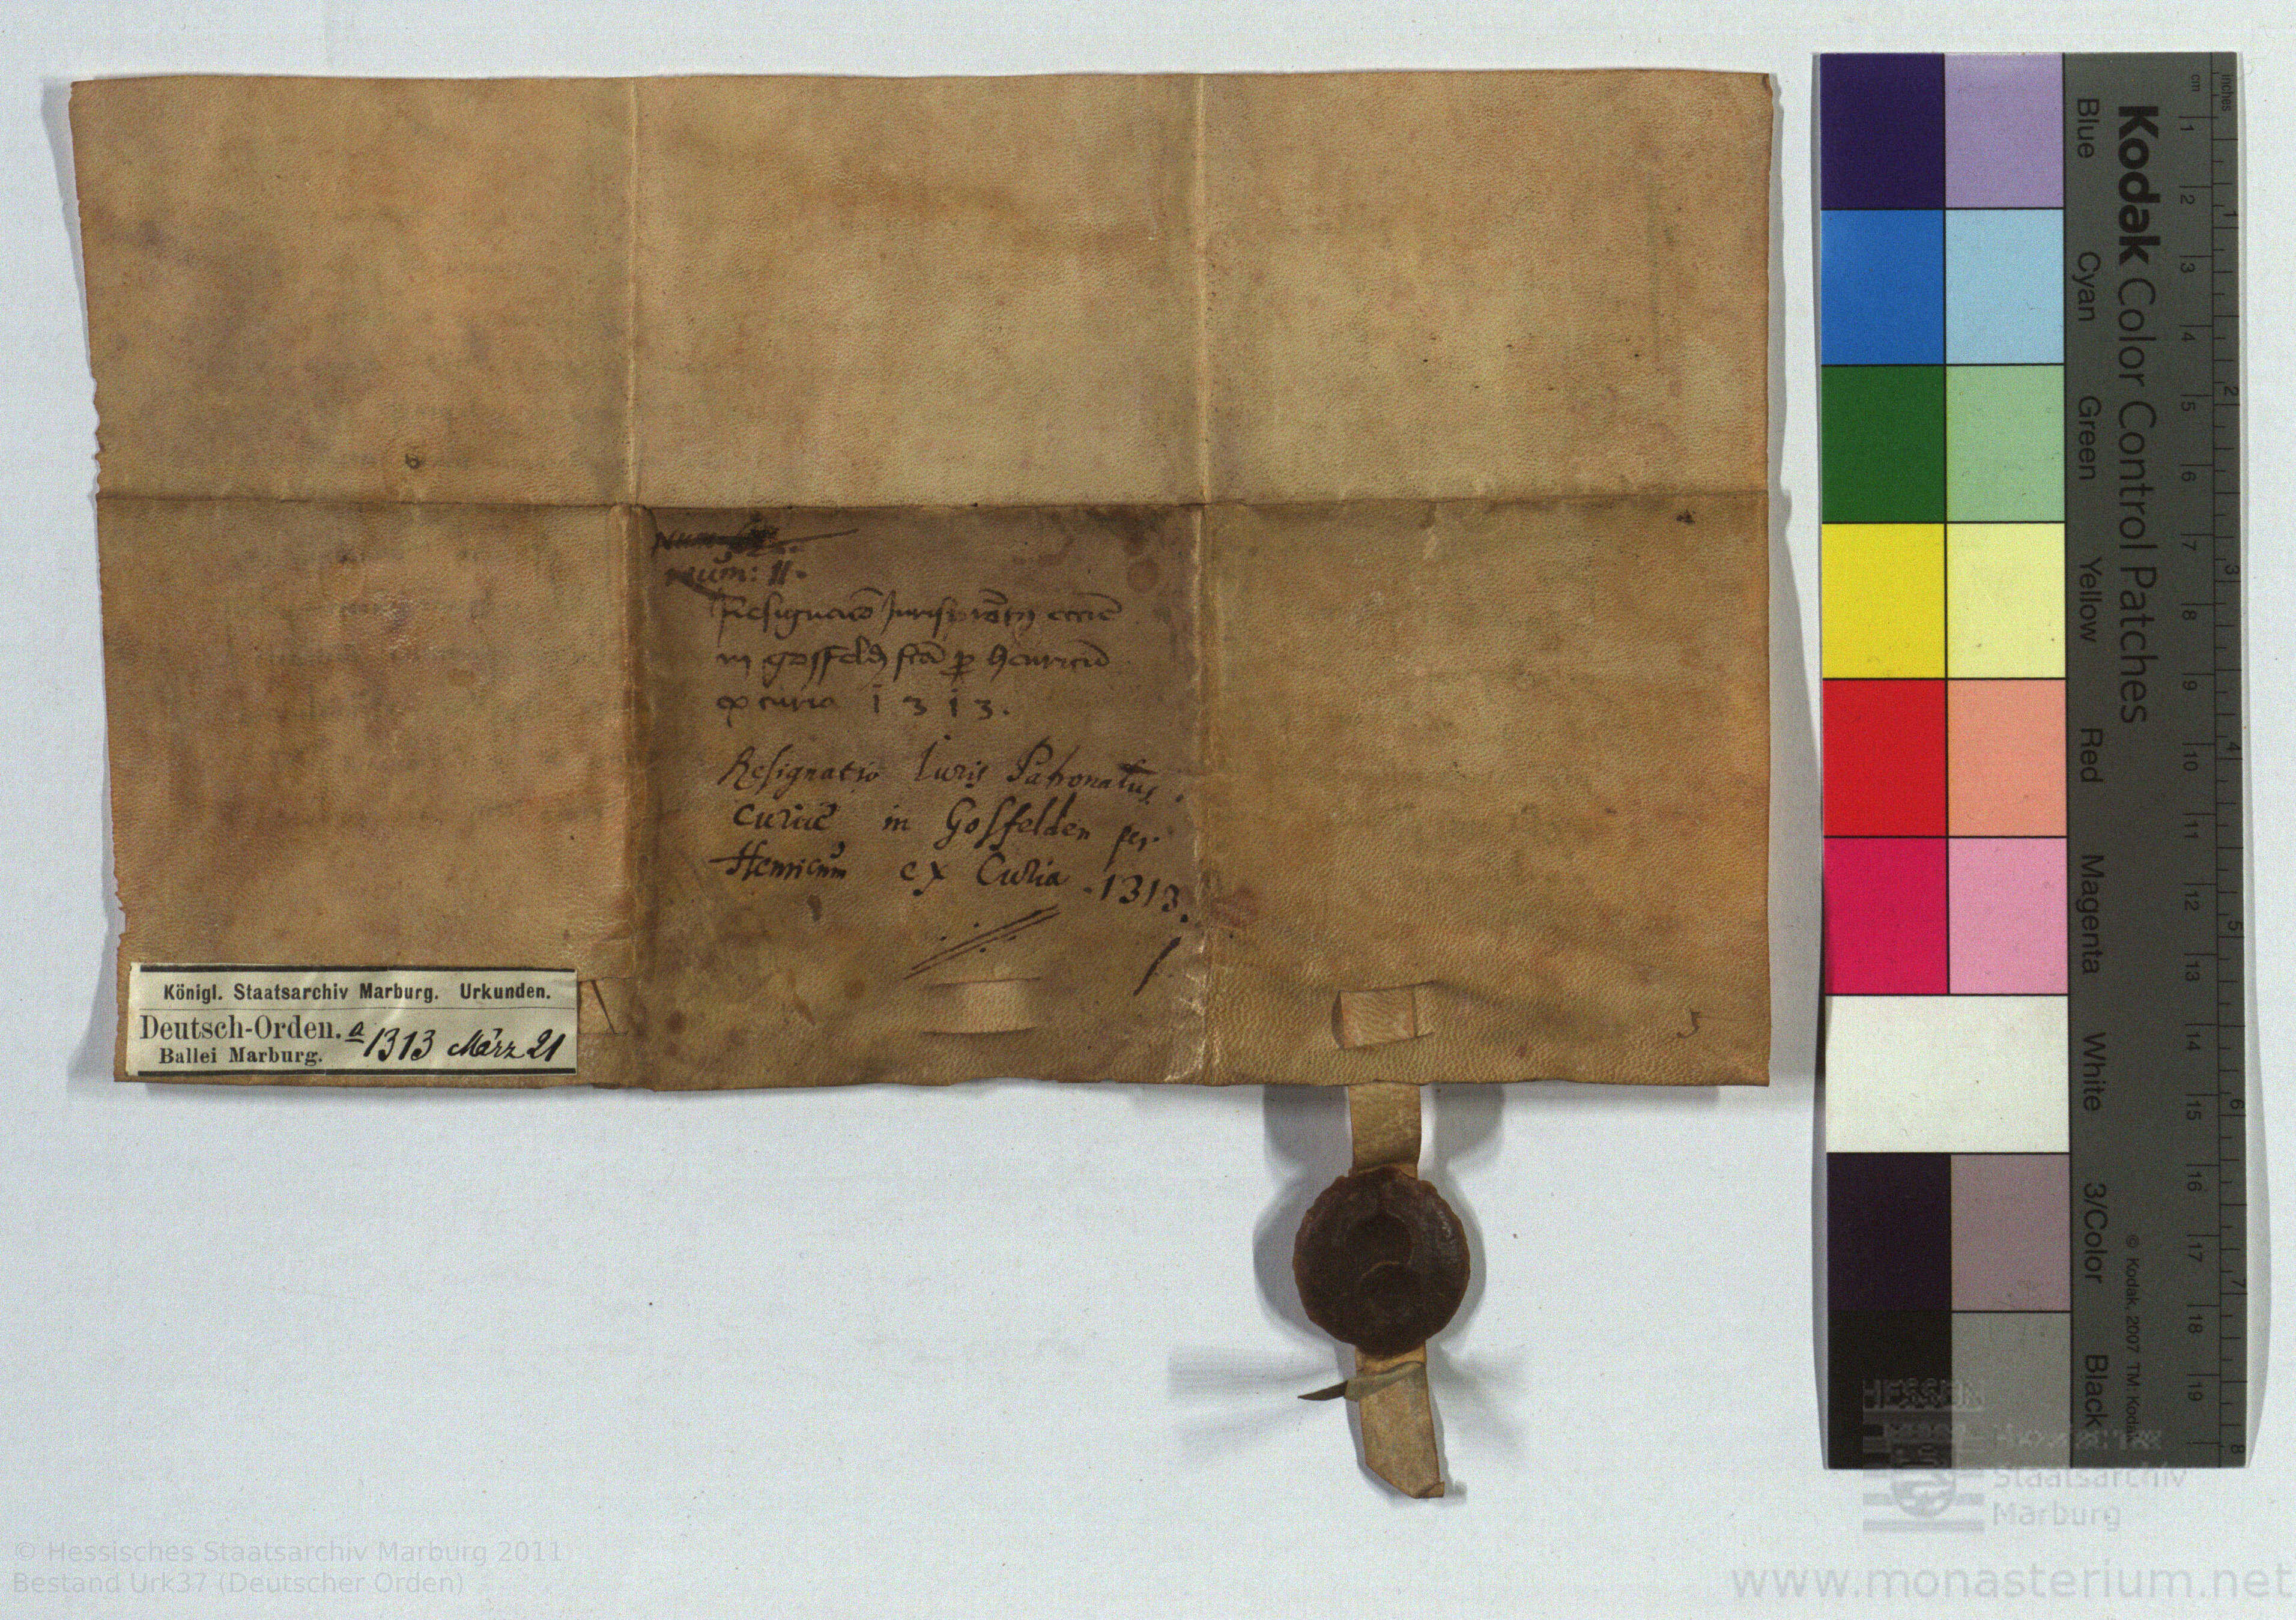 Num: II.
Resignacō Juris prōtꝰ eccīe
in gosffeldē fc̄a ꝑ Henricū
ex curia 1313.
Resignatio Iuris Patronatus
Curiæ in Gosfelden per
Henricum ex Curia . 1313.
Königl. Staatsarchiv Marburg. Urkunden.
Deutsch-Orden.
Ballei Marburg.
a 1313 März 21
Kodak Color Control Patches
Blue Cyan Green Yellow Red Magenta White 3/Color Black
inches 1 2 3 4 5 6 7 8
cm 1 2 3 4 5 6 7 8 9 10 11 12 13 14 15 16 17 18 19
© Kodak, 2007 TM: Kodak
HESSEN
Hessisches
Staatsarchiv
Marburg
© Hessisches Staatsarchiv Marburg 2011
Bestand Urk37 (Deutscher Orden)
www.monasterium.net